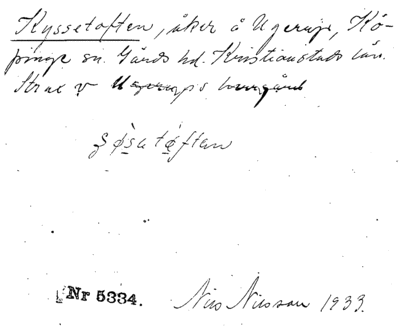 Kyssetoften, åker å Ugerup, Kö-
pinge sn. Gärds hd. Kristianstads län.
Strax v Ugerups herrgård
Nr 5334.
Nils Nilsson 1933.